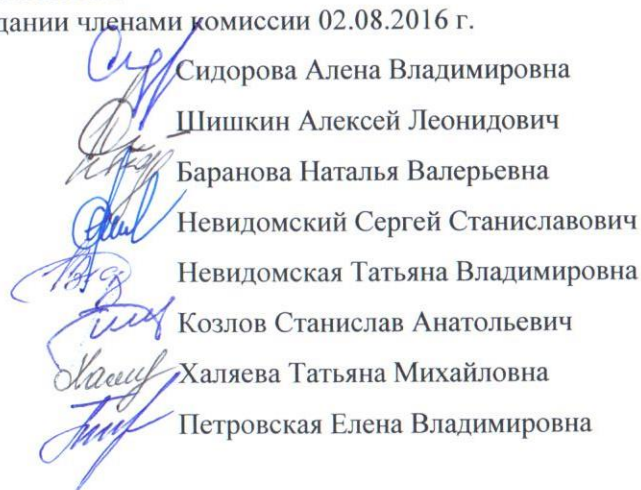 дании членами комиссии 02.08.2016 г.
Сидорова Алена Владимировна
Шишкин Алексей Леонидович
Баранова Наталья Валерьевна
Невидомский Сергей Станиславович
Невидомская Татьяна Владимировна
Козлов Станислав Анатольевич
Халяева Татьяна Михайловна
Петровская Елена Владимировна